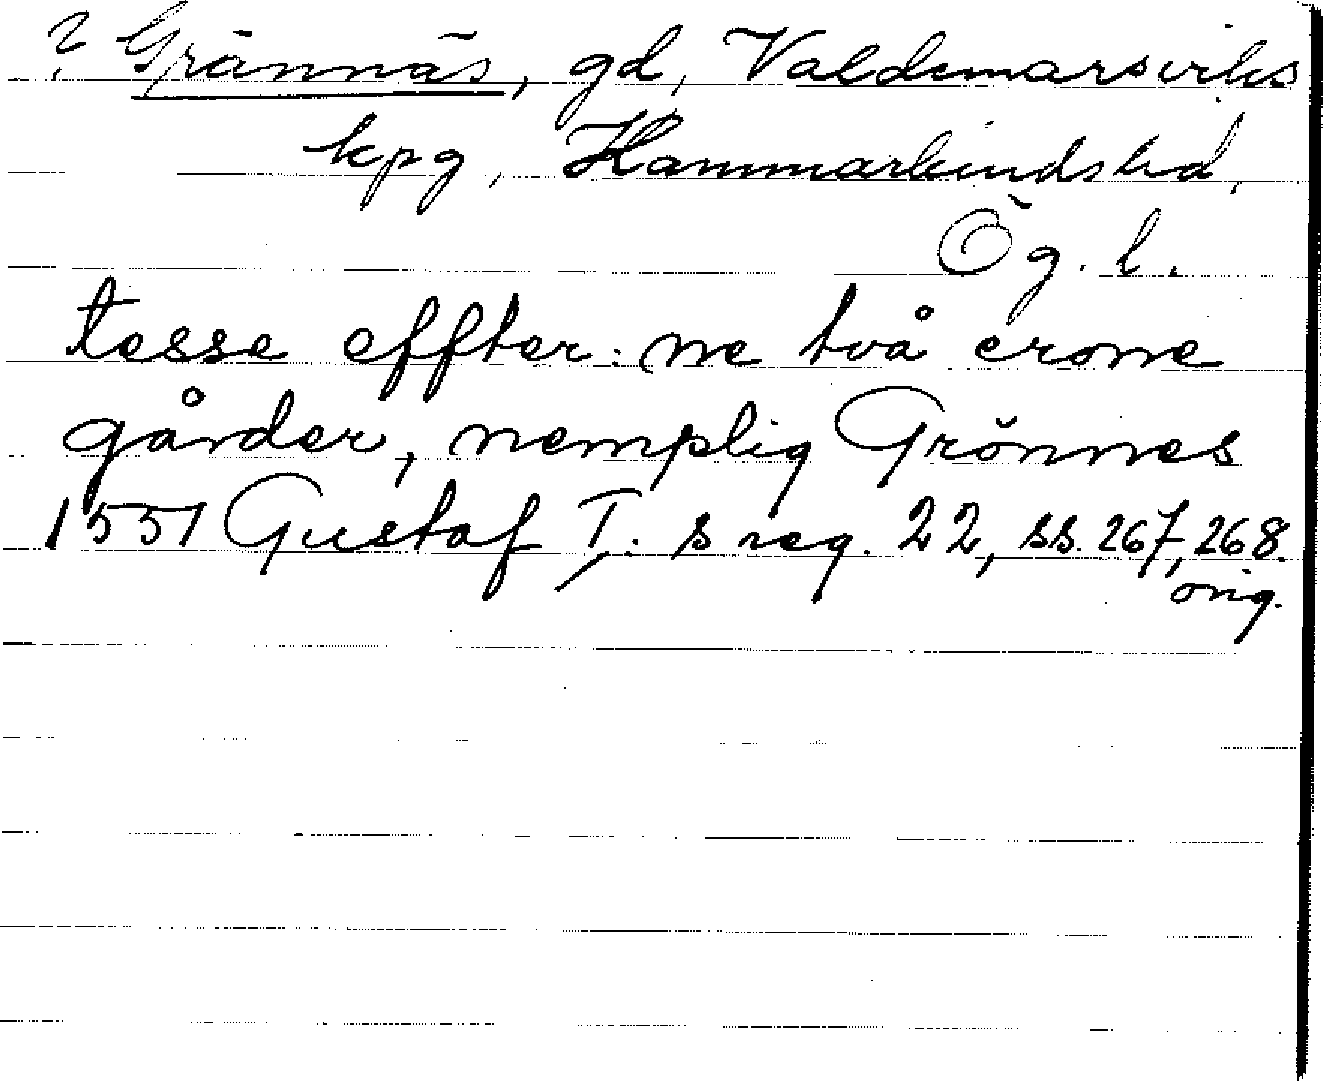 ? Grännäs, gd, Valdemarsviks
kpg, Hammarkinds hd,
Ög. l.
tesse effter:ne två crone
gårder, nemplig Grönnes
1551 Gustaf I:s reg. 22, ss. 267, 268.
orig.